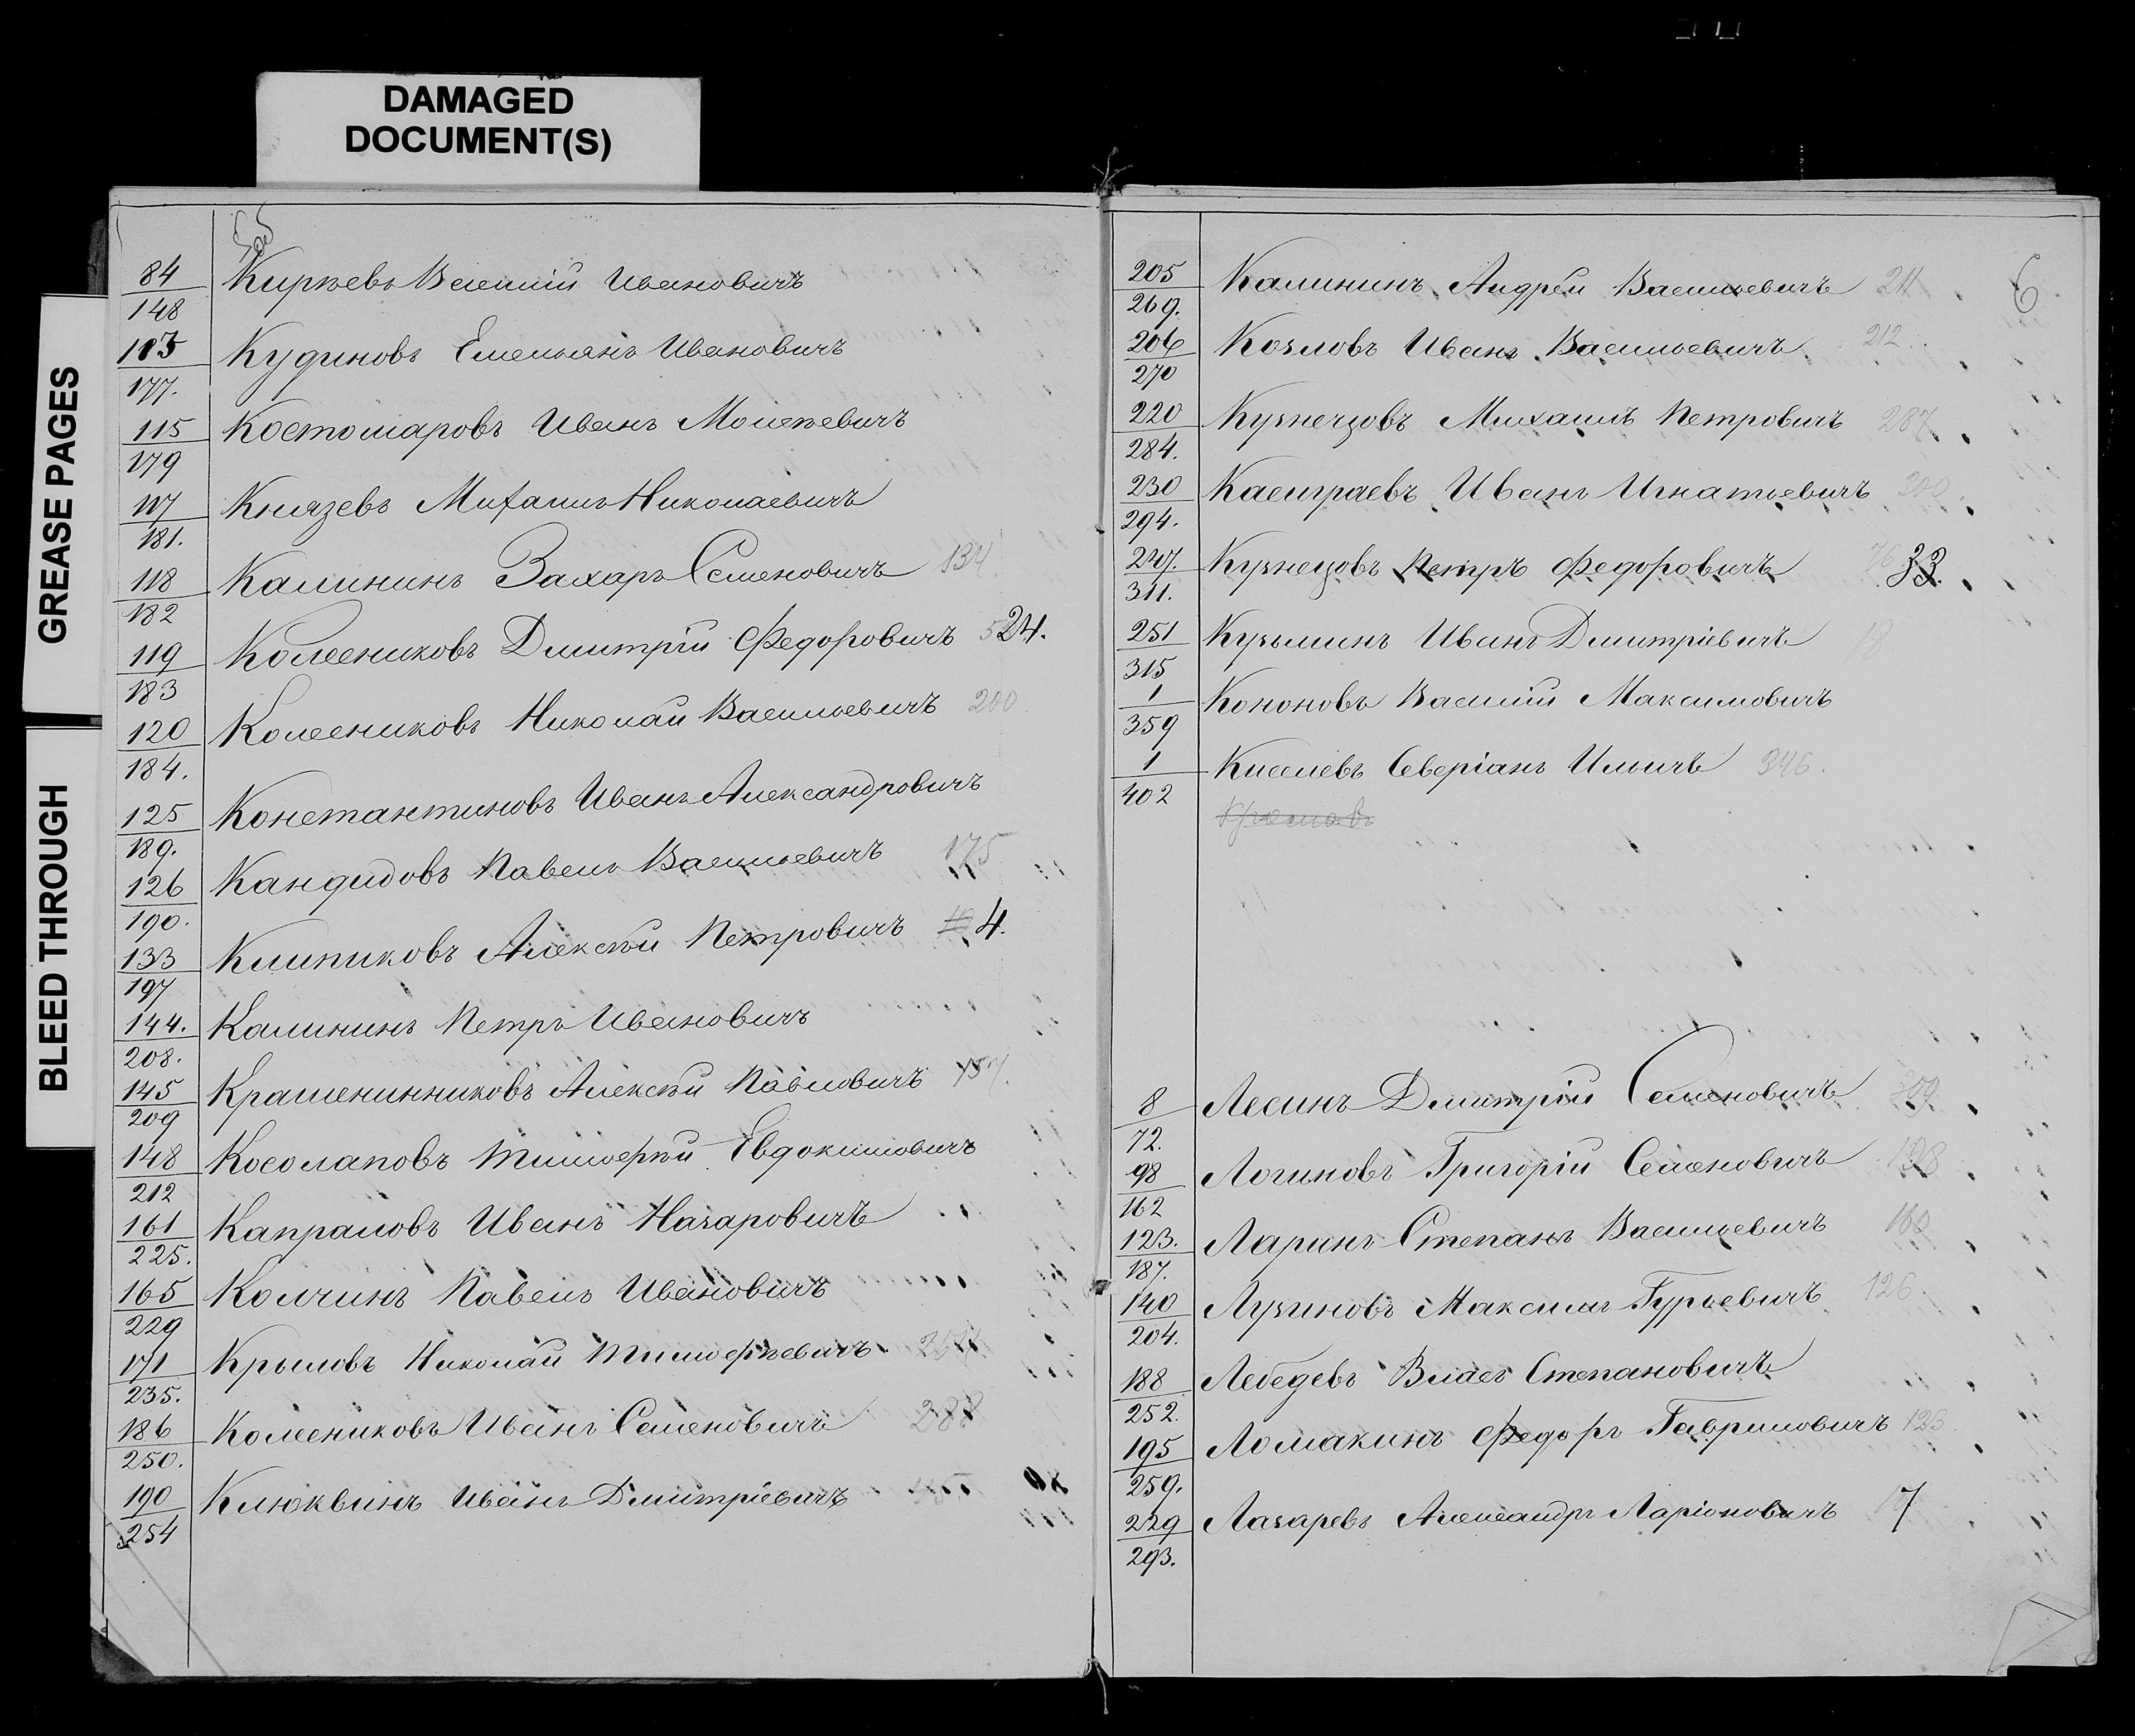 DAMAGED
DOCUMENT(S)
GREASE PAGES
BLEED THROUGH
84 Киріевъ Василій Ивановичъ
148
113 Кудиновъ Емельянъ Ивановичъ
177.
115 Костомаровъ Иванъ Моисеевичъ
179
117 Князевъ Михаилъ Николаевичъ
181.
118 Калининъ Захаръ Семеновичъ 134
182
119 Колесниковъ Дмитрій Федоровичъ 24.
183
120 Колесниковъ Николай Васильевичъ 200
184.
125 Константиновъ Иванъ Александровичъ
189.
126 Кандидовъ Павелъ Васильевичъ 175
190.
133 Климиковъ Алексѣй Петровичъ 4.
197
144. Калининъ Петръ Ивановичъ
208.
145 Крашенинниковъ Алексѣй Павловичъ
209
148 Косолаповъ Тимофѣй Евдокимовичъ
212
161 Капраловъ Иванъ Назаровичъ
225.
165 Колчинъ Павелъ Ивановичъ
229
171 Крыловъ Николай Тимофѣевичъ
235.
186 Колесниковъ Иванъ Семеновичъ 288
250.
190 Клюквинъ Иванъ Дмитріевичъ
254
6
205 Калининъ Андрей Васильевичъ 211
269.
206 Козловъ Иванъ Васильевичъ 212
270
220 Кузнецовъ Михаилъ Петровичъ 287
284.
230 Касиграевъ Иванъ Игнатьевичъ 300
294.
247. Кузнецовъ Петръ Федоровичъ 33.
311.
251 Кузьминъ Иванъ Дмитріевичъ 18
315
1 Кононовъ Василій Максимовичъ
359
1 Киселевъ Северіанъ Ильичъ 346.
402
8 Лесинъ Дмитрій Семеновичъ
72.
98 Логиновъ Григорій Семеновичъ 198
162
123. Ларинъ Степанъ Васильевичъ 160
187.
140 Лузиновъ Максимъ Гурьевичъ 126
204.
188 Лебедевъ Власъ Степановичъ
252.
195 Ломакинъ Федоръ Гавриловичъ 123
259.
229 Лазаревъ Александръ Ларіоновичъ 7
293.